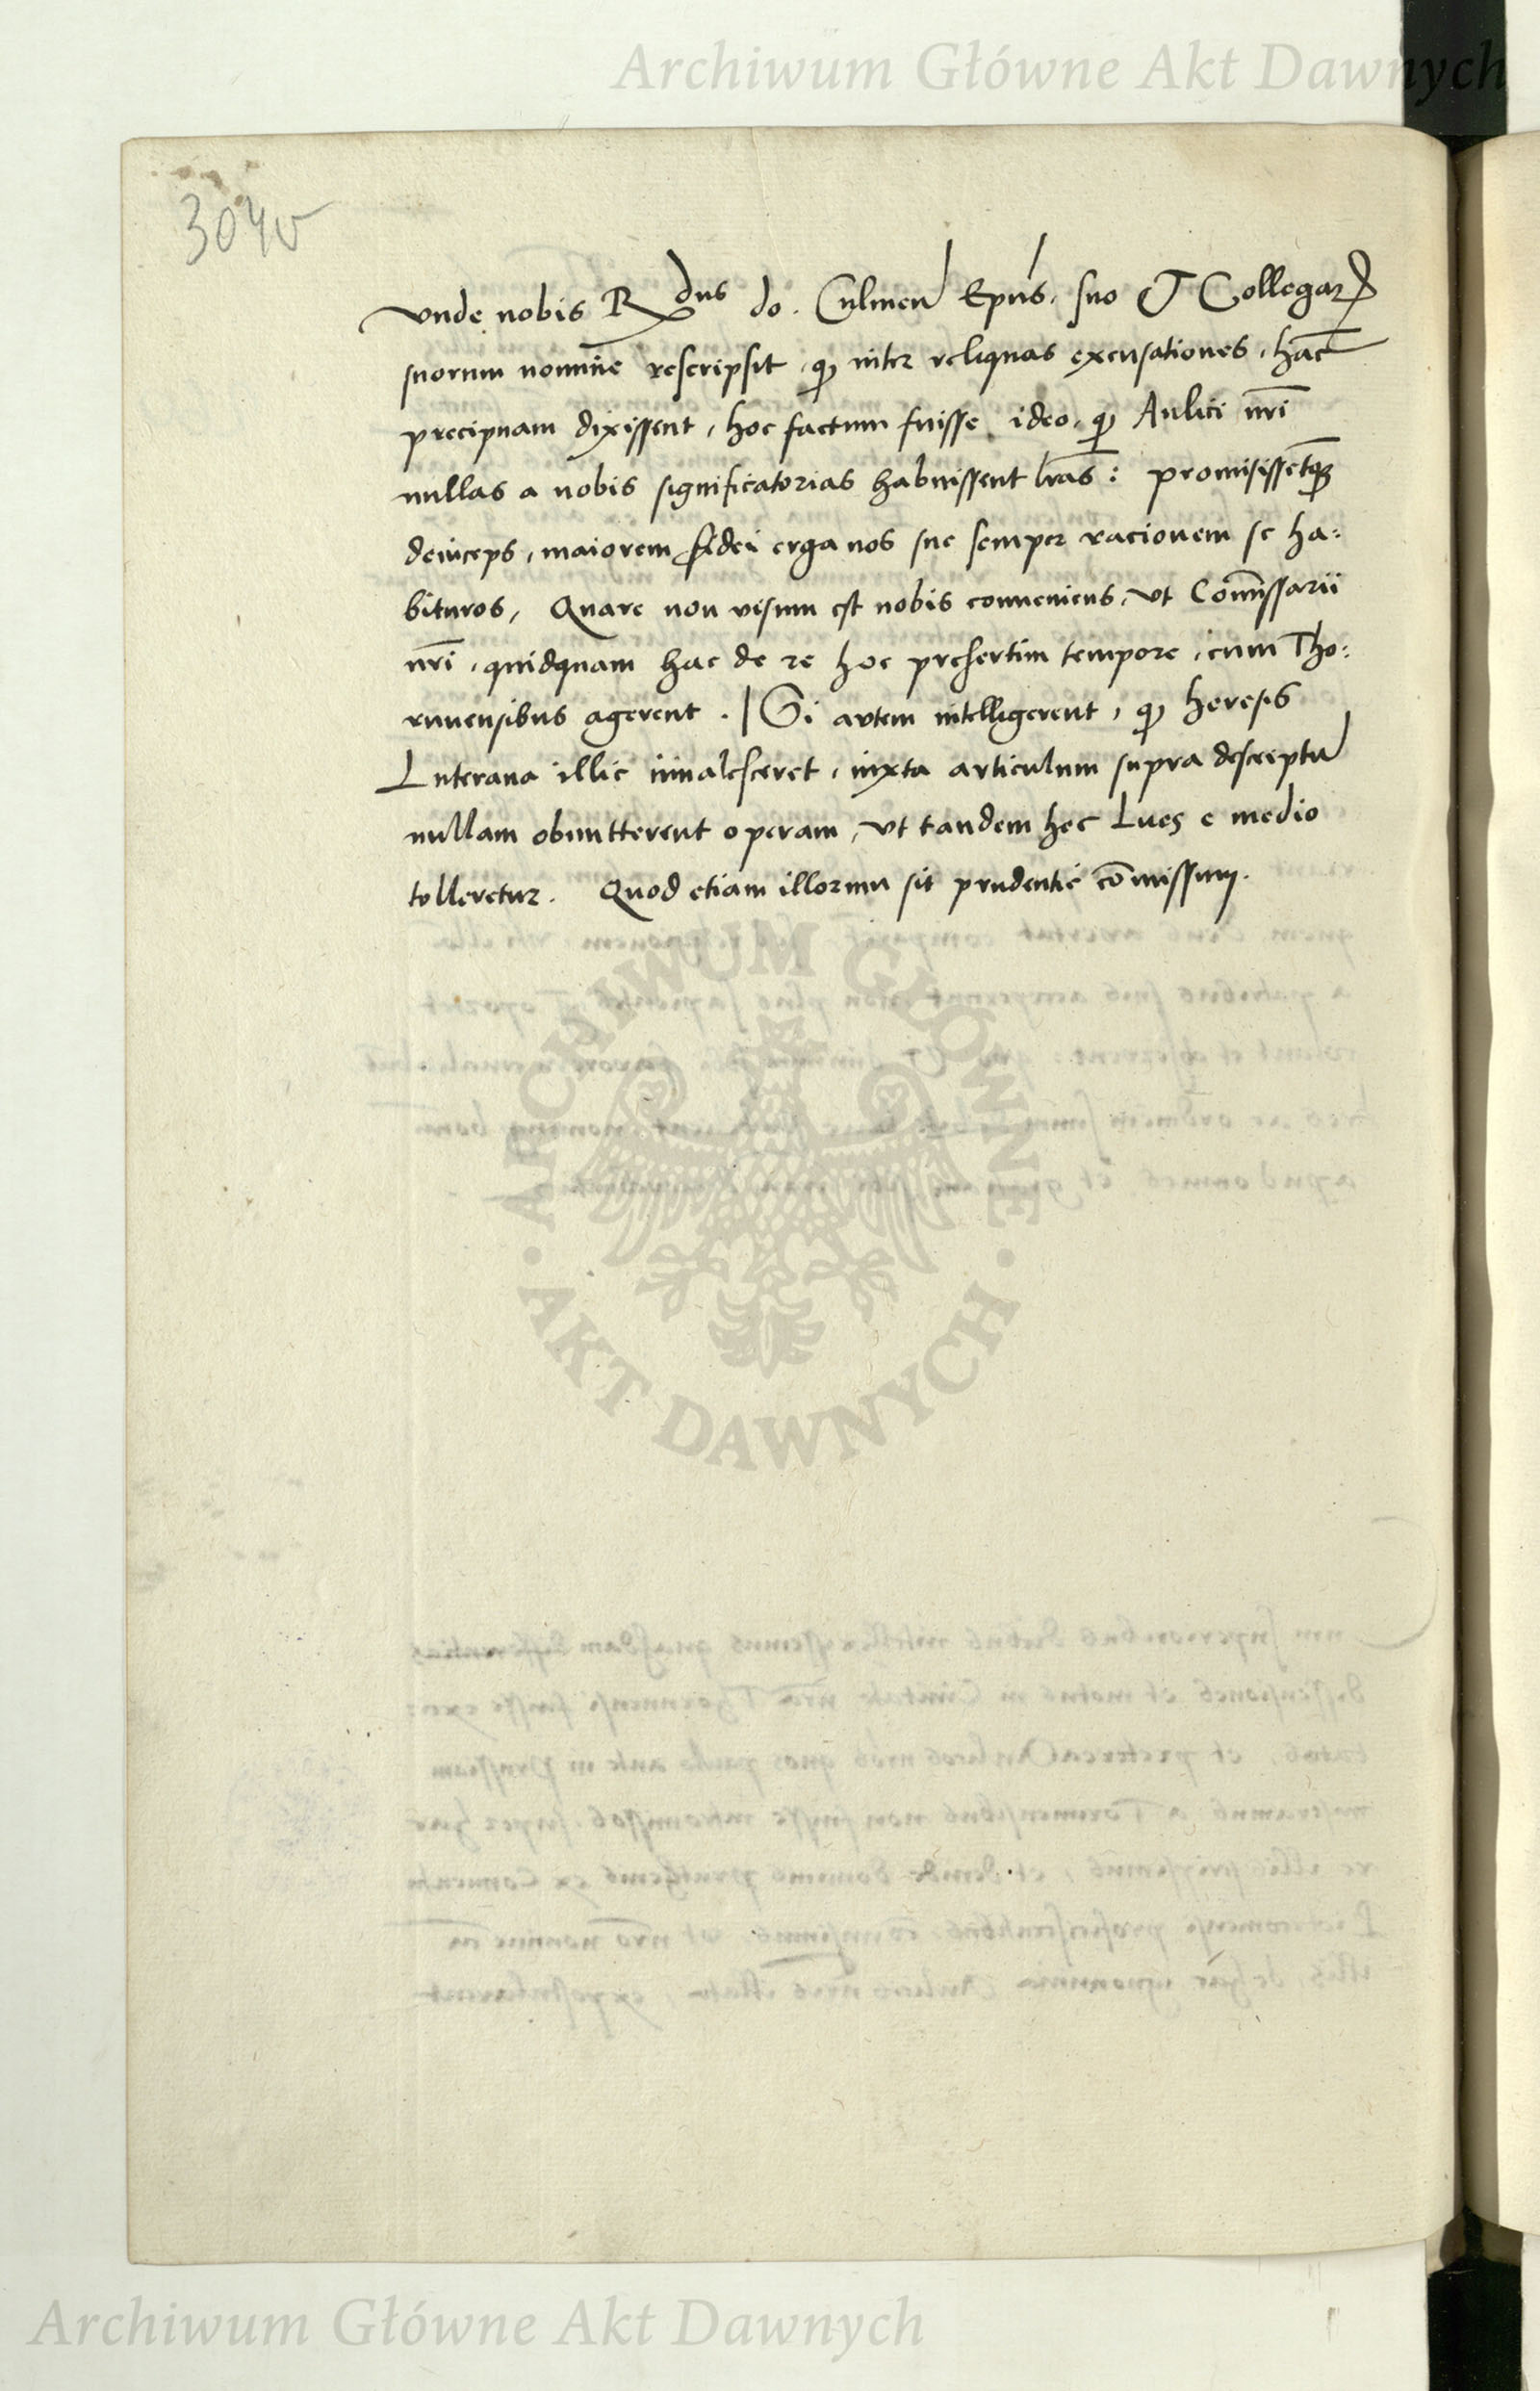 Archiwum Główne Akt Dawnych
304v
Vnde nobis Rdus do. Culmen Epus. suo et Collegar
suorum nomine rescripsit, qp inter reliquas excusationes, hac
precipuam dixissent, hoc factum fuisse ideo, qp Aulici nri
nullas a nobis significatorias habuissent lras: promisissetqz
deinceps, maiorem fidei erga nos sue semper racionem se ha:
bituros, Quare non visum est nobis conueniens, vt Comissarii
nri, quidquam hac de re hoc presertim tempore, cum Tho:
runensibus agerent. | Si avtem intelligerent, qp heresis
Luterana illic inualesceret, iuxta articulum supra descriptu
nullam obmitterent operam, vt tandem hec Lues e medio
tolleretur. Quod etiam illorum sit prudentie comissum.
ARCHIWUM GŁÓWNE
AKT DAWNYCH
Archiwum Główne Akt Dawnych